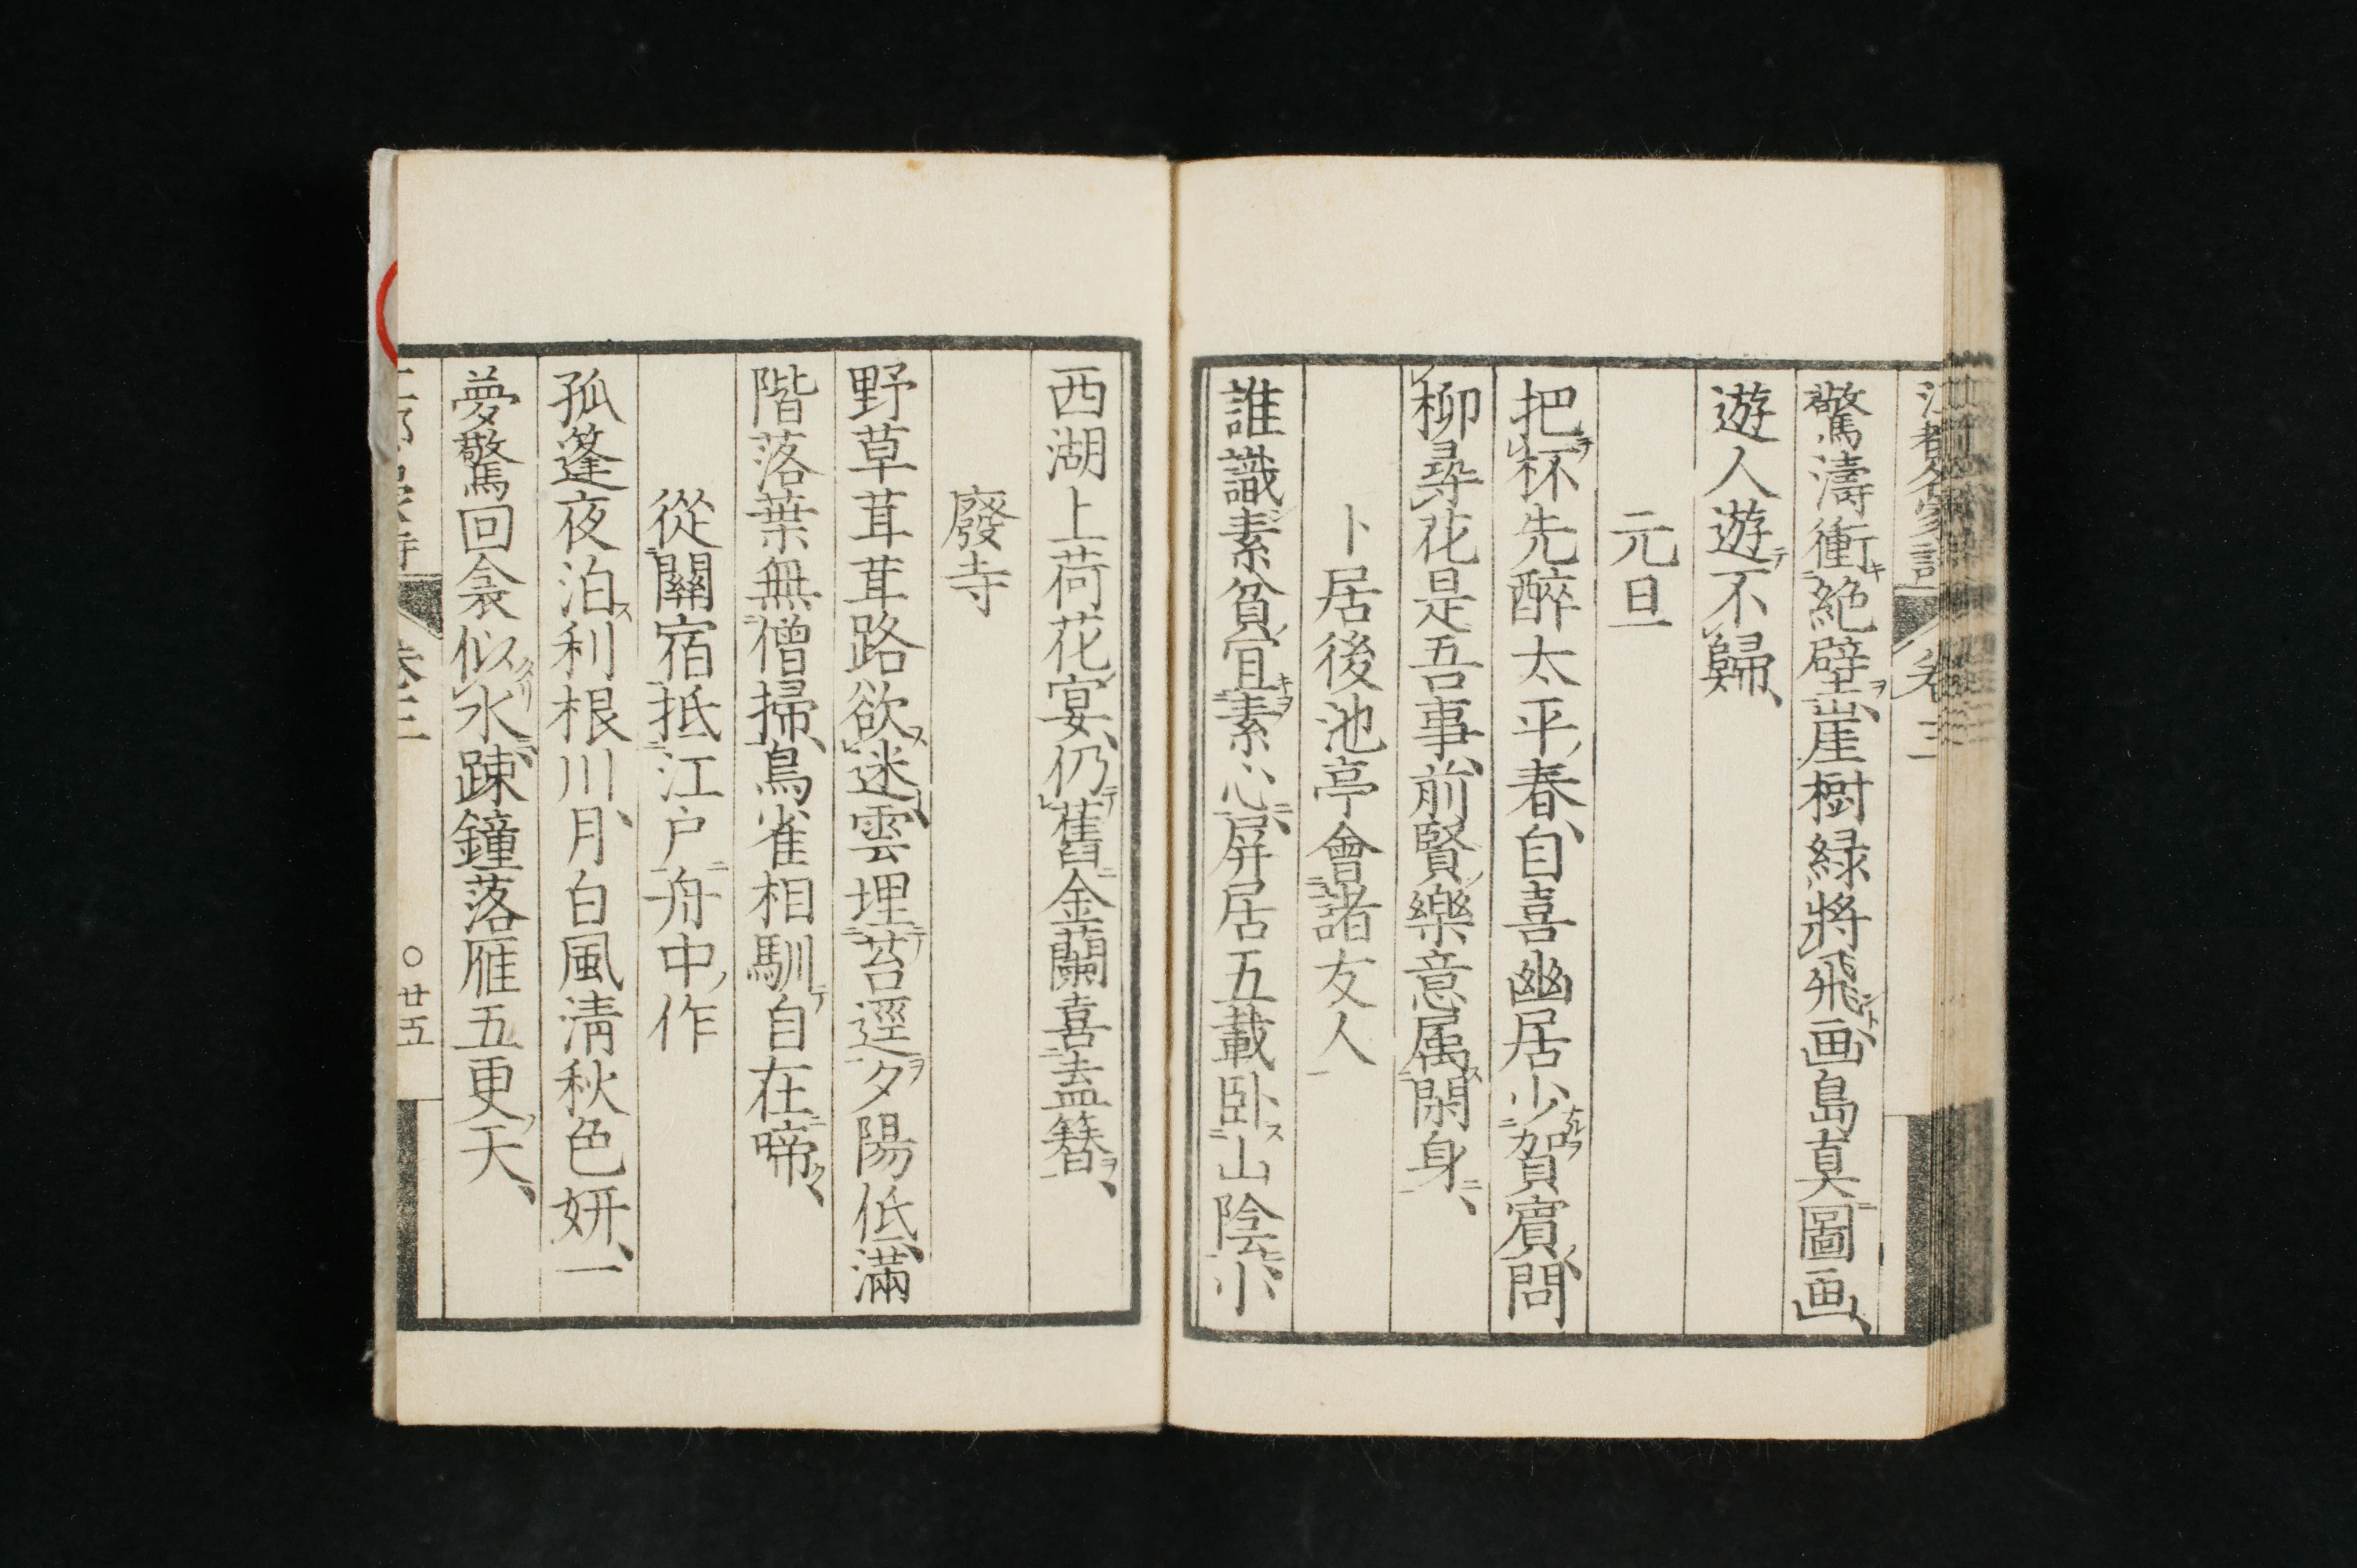 江都名家詩 卷三
驚濤衝絶壁崖樹緑將飛画島真圖画
遊人遊不歸
元旦
把杯先醉太平春自喜幽居少賀賓問
柳尋花是吾事前賢樂意属閑身
卜居後池亭會諸友人
誰識素貧宜素心屏居五載臥山陰小
西湖上荷花宴仍舊金蘭喜盍簪
廢寺
野草茸茸路欲迷雲埋苔逕夕陽低滿
階落葉無僧掃鳥雀相馴自在啼
從關宿抵江戸舟中作
孤篷夜泊利根川月白風清秋色妍一
夢驚回衾似水踈鐘落雁五更天
卷三 〇廿五